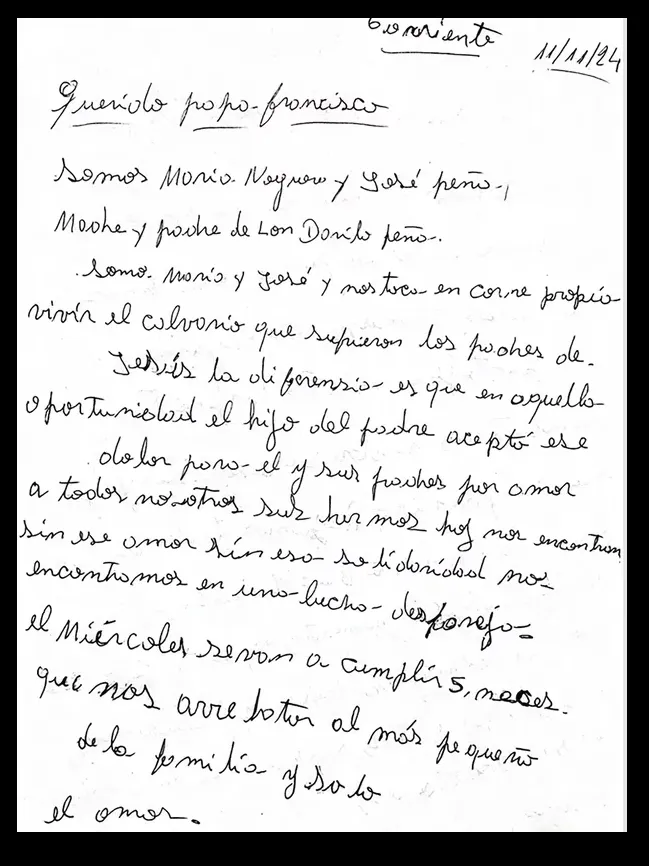 Corriente
11/11/24
Querido papa francisco
Somos Maria Noguera y José peña,
Madre y padre de Loan Danilo peña.
Somo Maria y José y nos toca en carne propia
vivir el calvario que sufrieron los padres de
Jesús la diferensia es que en aquella
oportunidad el hijo del padre aceptó ese
dolor para el y sus padres por amor
a todos nosotros sus hermos hoy nos encontram
sin ese amor sin esa solidaridad nos
encontramos en una lucha despareja
el Miércoles se van a cumplir 5, meses.
que nos arrebatar al más pequeño
de la familia y solo
el amor.